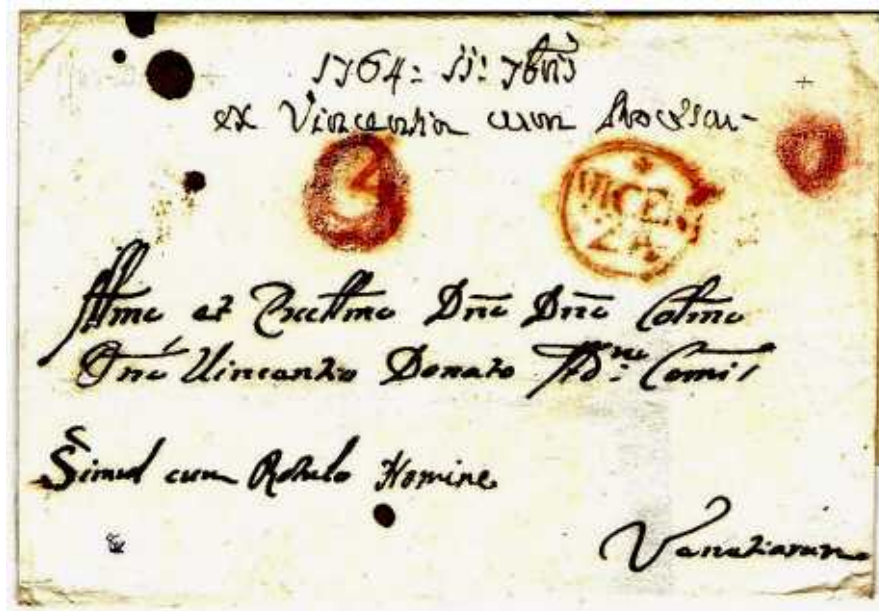 1764: 11: 7bris
ex Vincentia cum Processu
VICEN
ZA
Illmo et Eccellmo Dno Dno Colmo
Dno Vincentio Donato Comis
Simul cum Rotulo Homine
Venetiarum